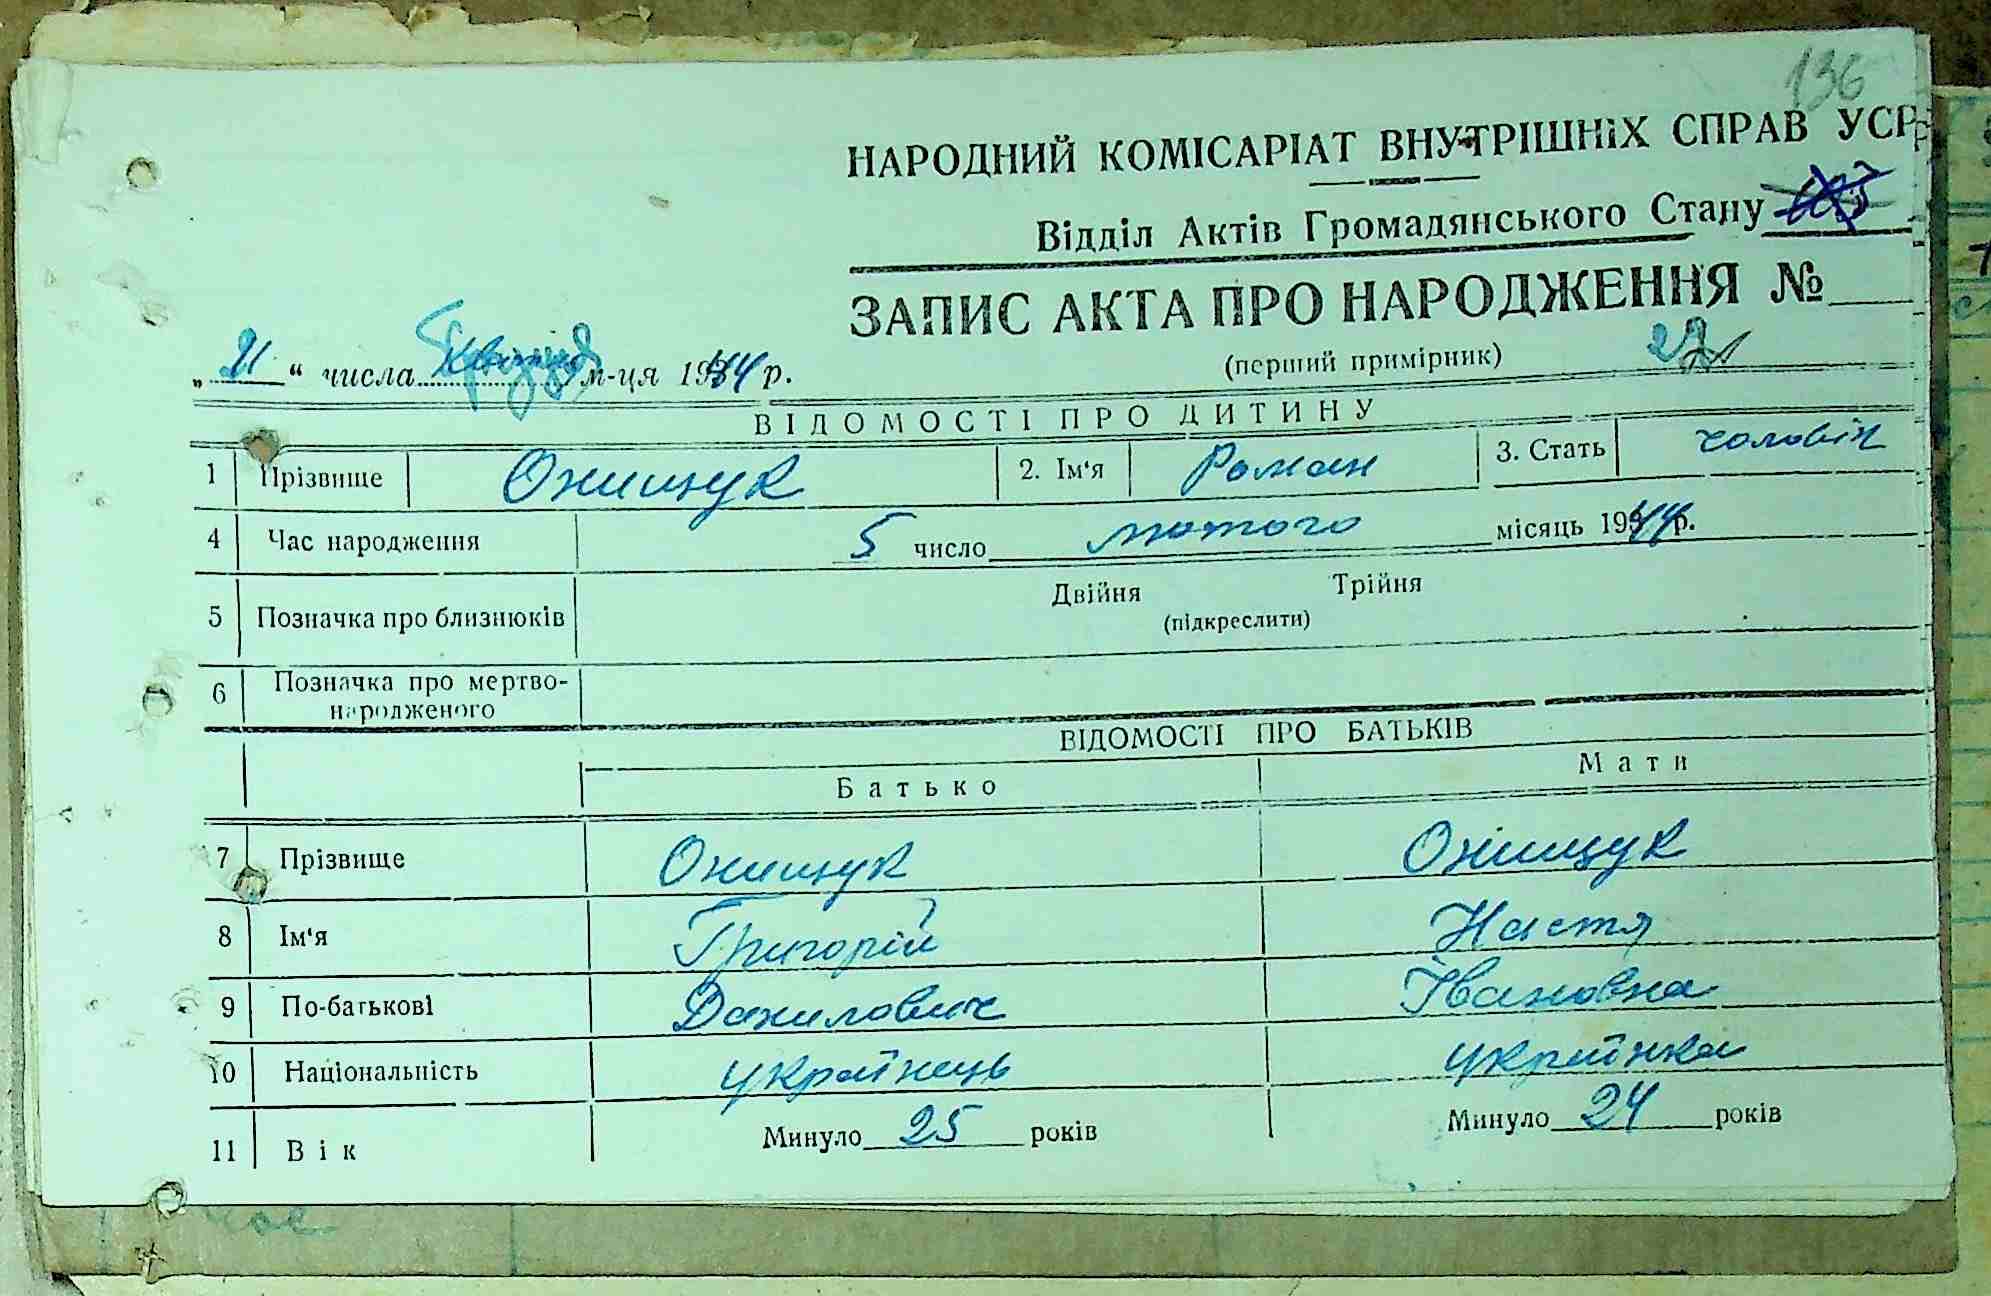 136
НАРОДНИЙ КОМІСАРІАТ ВНУТРІШНІХ СПРАВ УСРР
Відділ Актів Громадянського Стану
ЗАПИС АКТА ПРО НАРОДЖЕННЯ №
„21“ числа м-ця 1944 р.
(перший примірник)
ВІДОМОСТІ ПРО ДИТИНУ
1 Прізвище Онищук 2. Ім‘я Роман 3. Стать чоловік
4 Час народження 5 число лютого місяць 1944 р.
5 Позначка про близнюків Двійня Трійня
(підкреслити)
6 Позначка про мертво-
народженого
ВІДОМОСТІ ПРО БАТЬКІВ
Батько Мати
7 Прізвище Онищук Оніщук
8 Ім‘я Григорій Настя
9 По-батькові Данилович Івановна
10 Національність українець українка
11 Вік Минуло 25 років Минуло 24 років